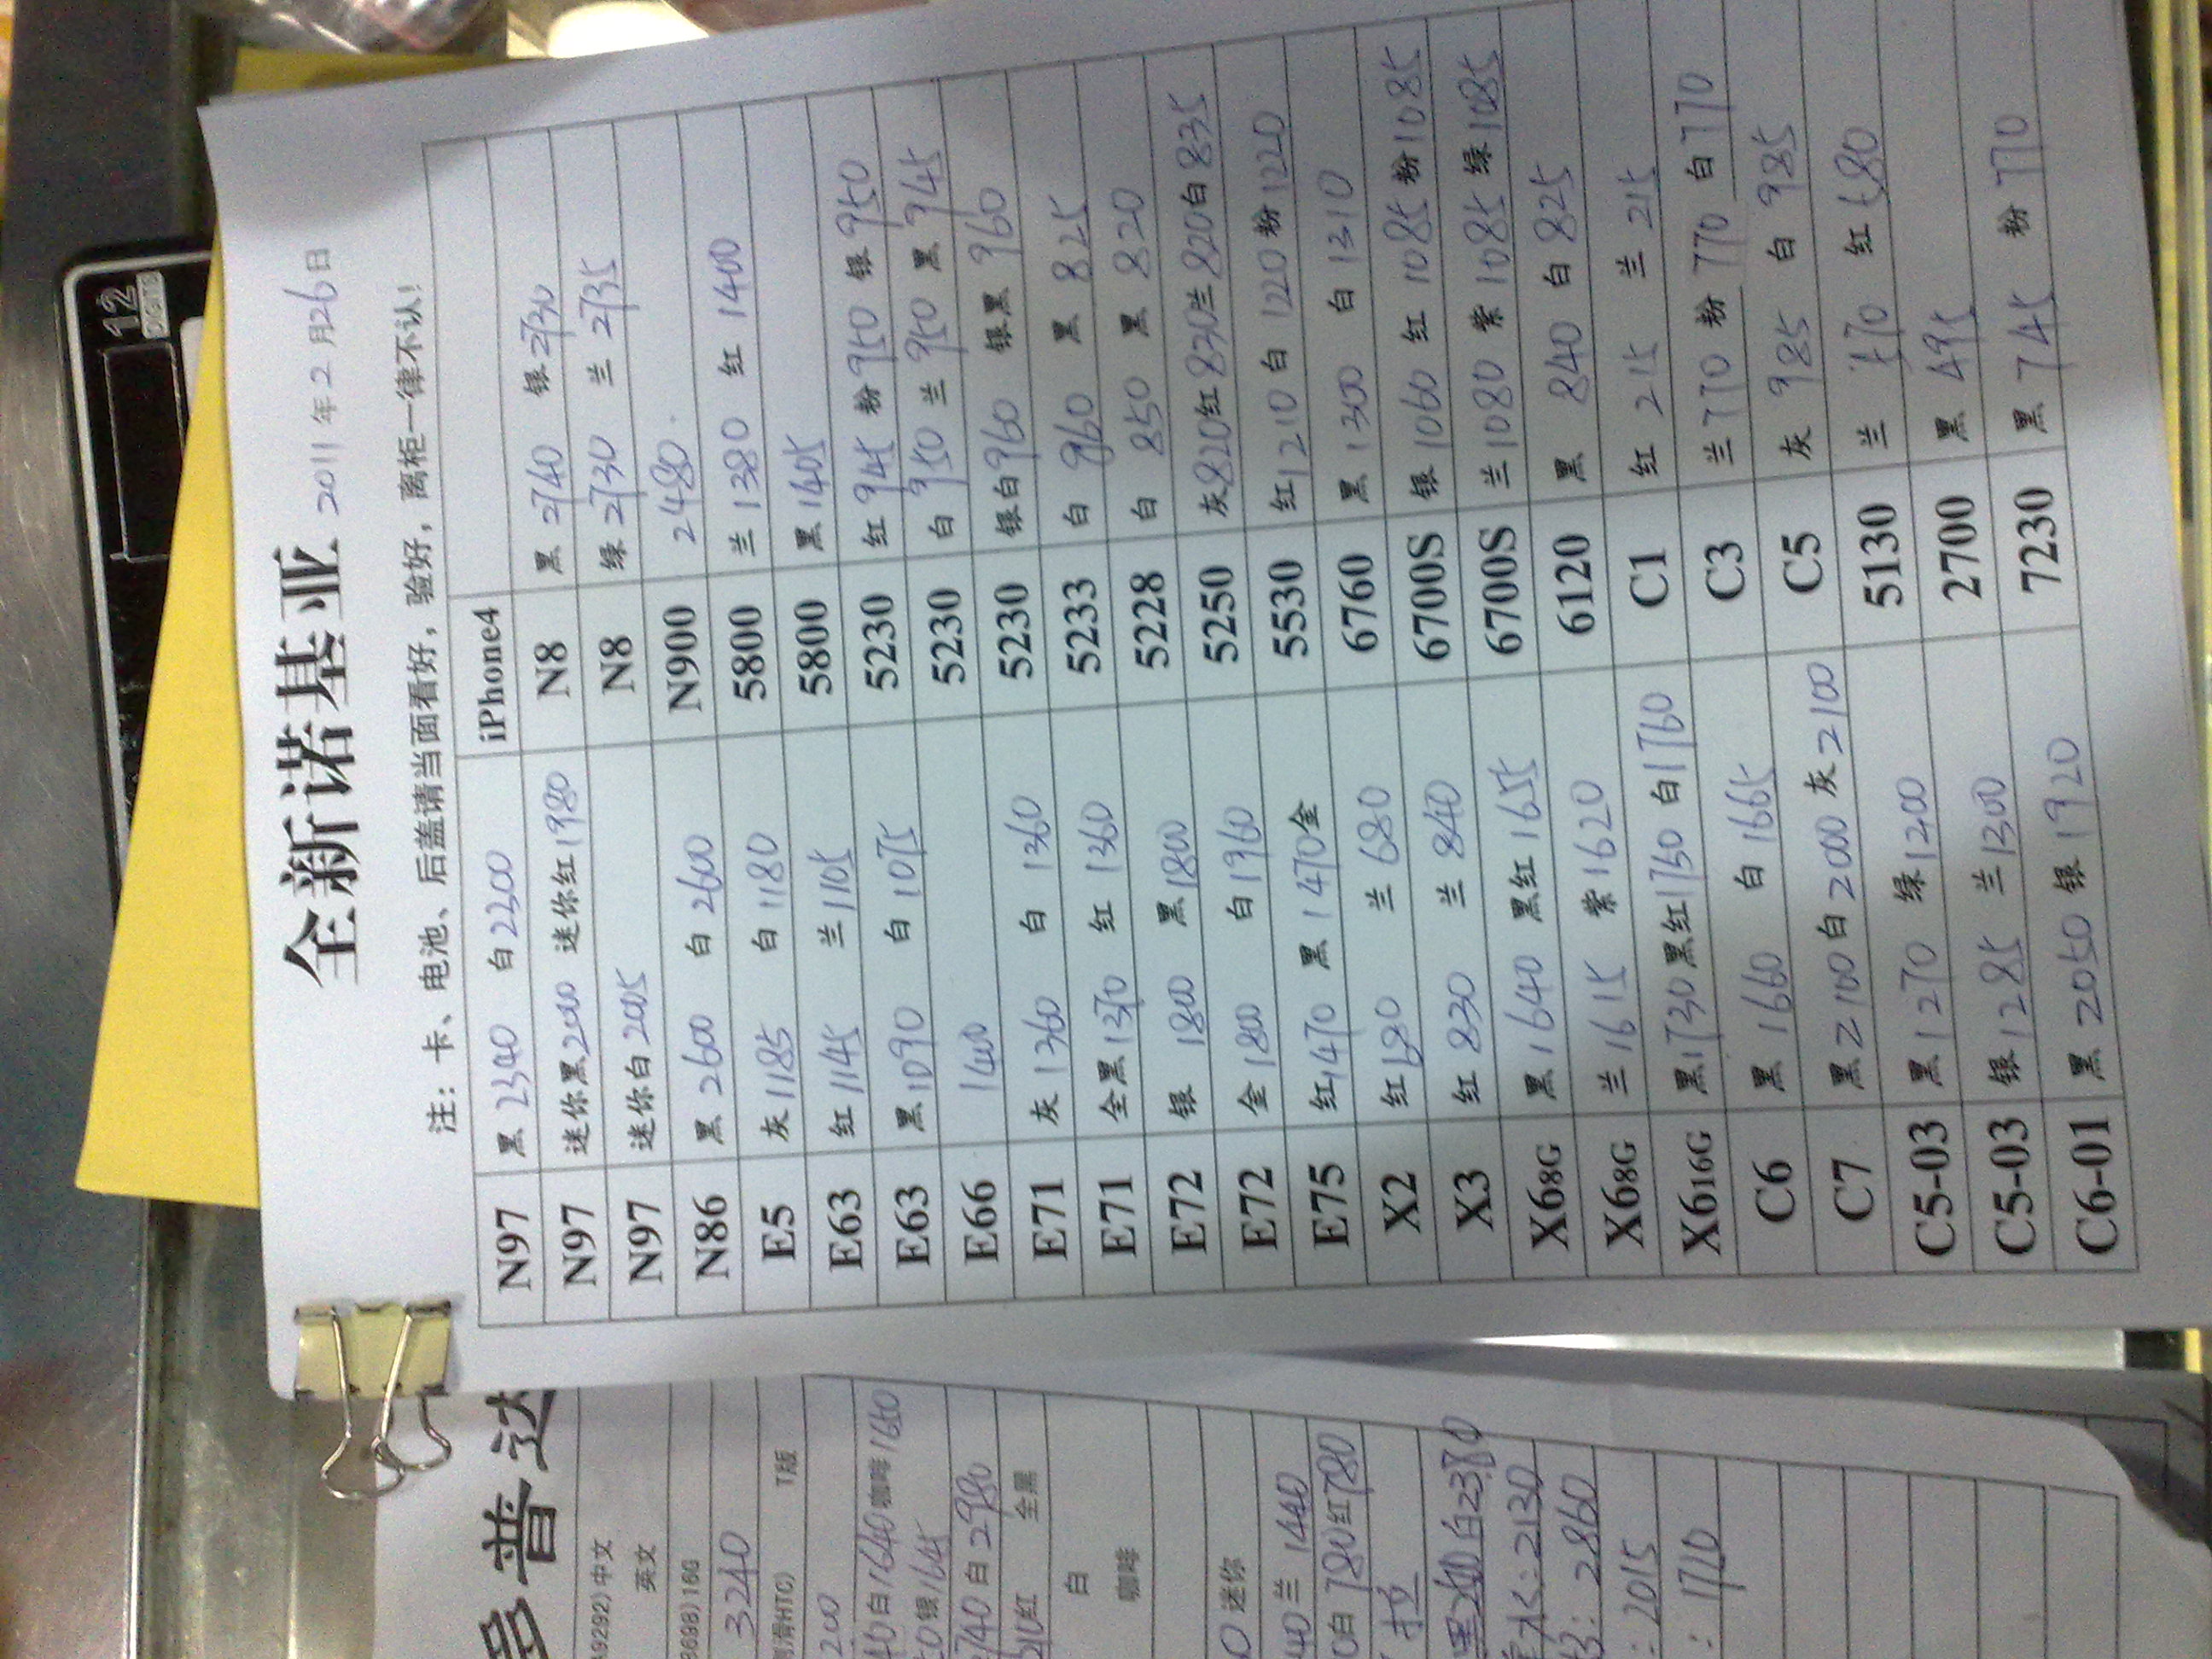 全新诺基亚 2011年2月26日
注：卡、电池、后盖请当面看好，验好，离柜一律不认！
N97 黑 2340 白 2300 iPhone4
N97 迷你黑 2000 迷你红 1980 N8 黑 2740 银 2730
N97 迷你白 2005 N8 绿 2730 兰 2735
N86 黑 2600 白 2600 N900 2480
E5 灰 1185 白 1180 5800 兰 1380 红 1400
E63 红 1145 兰 1105 5800 黑 1405
E63 黑 1090 白 1075 5230 红 945 粉 950 银 950
E66 1400 5230 白 950 兰 950 黑 945
E71 灰 1360 白 1360 5230 银白 960 银黑 960
E71 全黑 1370 红 1360 5233 白 960 黑 825
E72 银 1800 黑 1800 5228 白 850 黑 820
E72 金 1800 白 1960 5250 灰 820 红 830 兰 820 白 835
E75 红 1470 黑 1470 金 5530 红 1210 白 1220 粉 1220
X2 红 680 兰 680 6760 黑 1300 白 1310
X3 红 830 兰 840 6700S 银 1060 红 1085 粉 1085
X68G 黑 1640 黑红 1655 6700S 兰 1080 紫 1085 绿 1085
X68G 兰 1615 紫 1620 6120 黑 840 白 825
X616G 黑 1730 黑红 1750 白 1760 C1 红 215 兰 215
C6 黑 1660 白 1665 C3 兰 770 粉 770 白 770
C7 黑 2100 白 2000 灰 2100 C5 灰 985 白 985
C5-03 黑 1270 绿 1200 5130 兰 红 680
C5-03 银 1285 兰 1300 2700 黑 495
C6-01 黑 2050 银 1920 7230 黑 745 粉 770
多普达
A9292)中文
英文
8698)16G
3240
HTC) T版
200
40 白 1640 咖啡 1650
50 银 1645
740 白 2980
红 全黑
白
咖啡
0 迷你
40 兰 1440
0 白 780 红 780
黑 白 2380
: 2130
: 2860
: 2015
: 1710